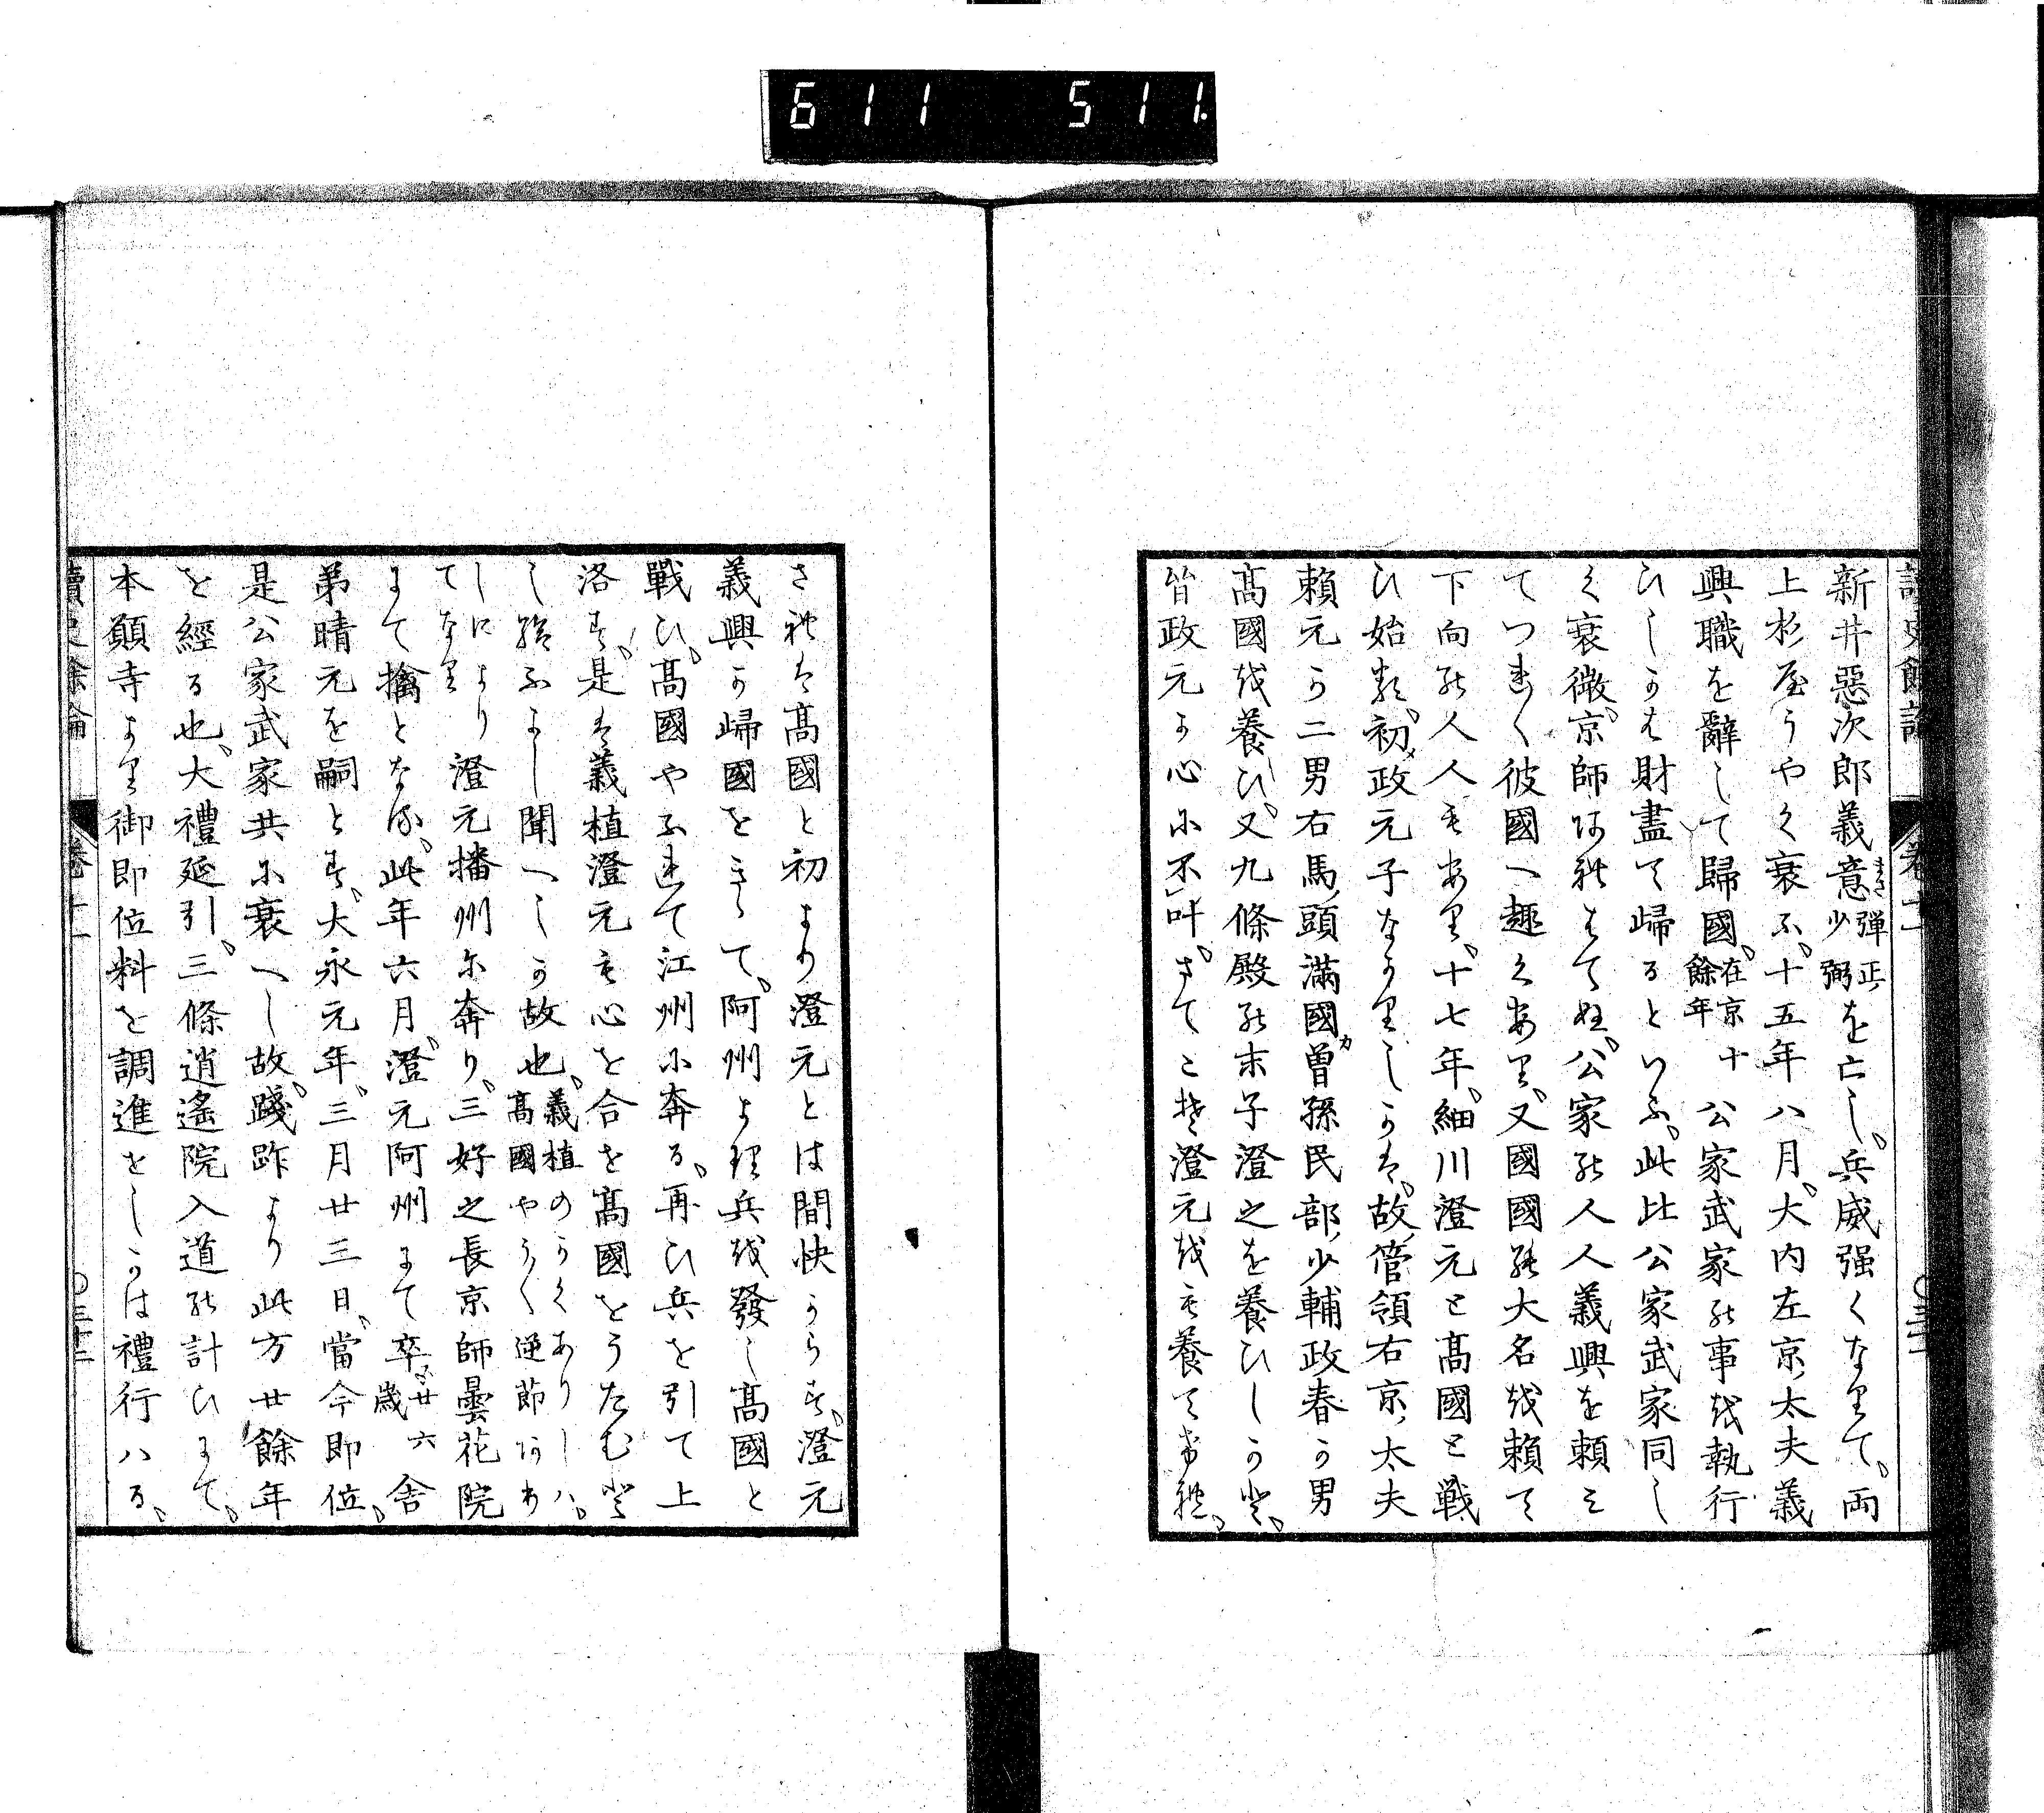 611 511.
新井惡次郎義意まさ彈正少弼を亡し、兵威强くなりて、両
上杉屋うやく衰ふ、十五年八月、大内左京太夫義
興、職を辭して歸國、在京十餘年公家武家の事を執行
ひしかは財盡て歸るといふ、此比公家武家同し
く衰微、京師何れもて、公家の人人義興を頼み
てつれ〱彼國へ趣くあり、又國國の大名を頼て
下向の人人もあり、十七年、細川澄元と高國と戰
ひ始る、初メ政元子なかりしかは、故管領右京太夫
頼元か二男右馬頭滿國カ曽孫民部少輔政春か男
高國を養ひ、又九條殿の末子澄之を養ひしかと、
皆政元か心に不叶、さてこそ澄元をも養てけれ、
されは高國と初より澄元とは間快からす、澄元
義興か歸國をきゝて、阿州より兵を發し高國と
戰ひ、高國やふれて江州に奔る、再ひ兵を引て上
洛す、是は義植澄元も心を合を高國をうたむと
し給ふよし聞へしか故也、義植のかくありしハ、高國やう〱逆節何あ
しによりてなり澄元播州に奔り、三好之長京師曇花院
まて擒となる、此年六月、澄元阿州まて卒、廿六歳舎
弟晴元を嗣とす、大永元年、三月廿三日、當今即位、
是公家武家共に衰へし故、踐祚より此方廿餘年
を經る也、大禮延引、三條逍遙院入道の計ひまて、
本願寺より御即位料を調進をしかは禮行ハる、